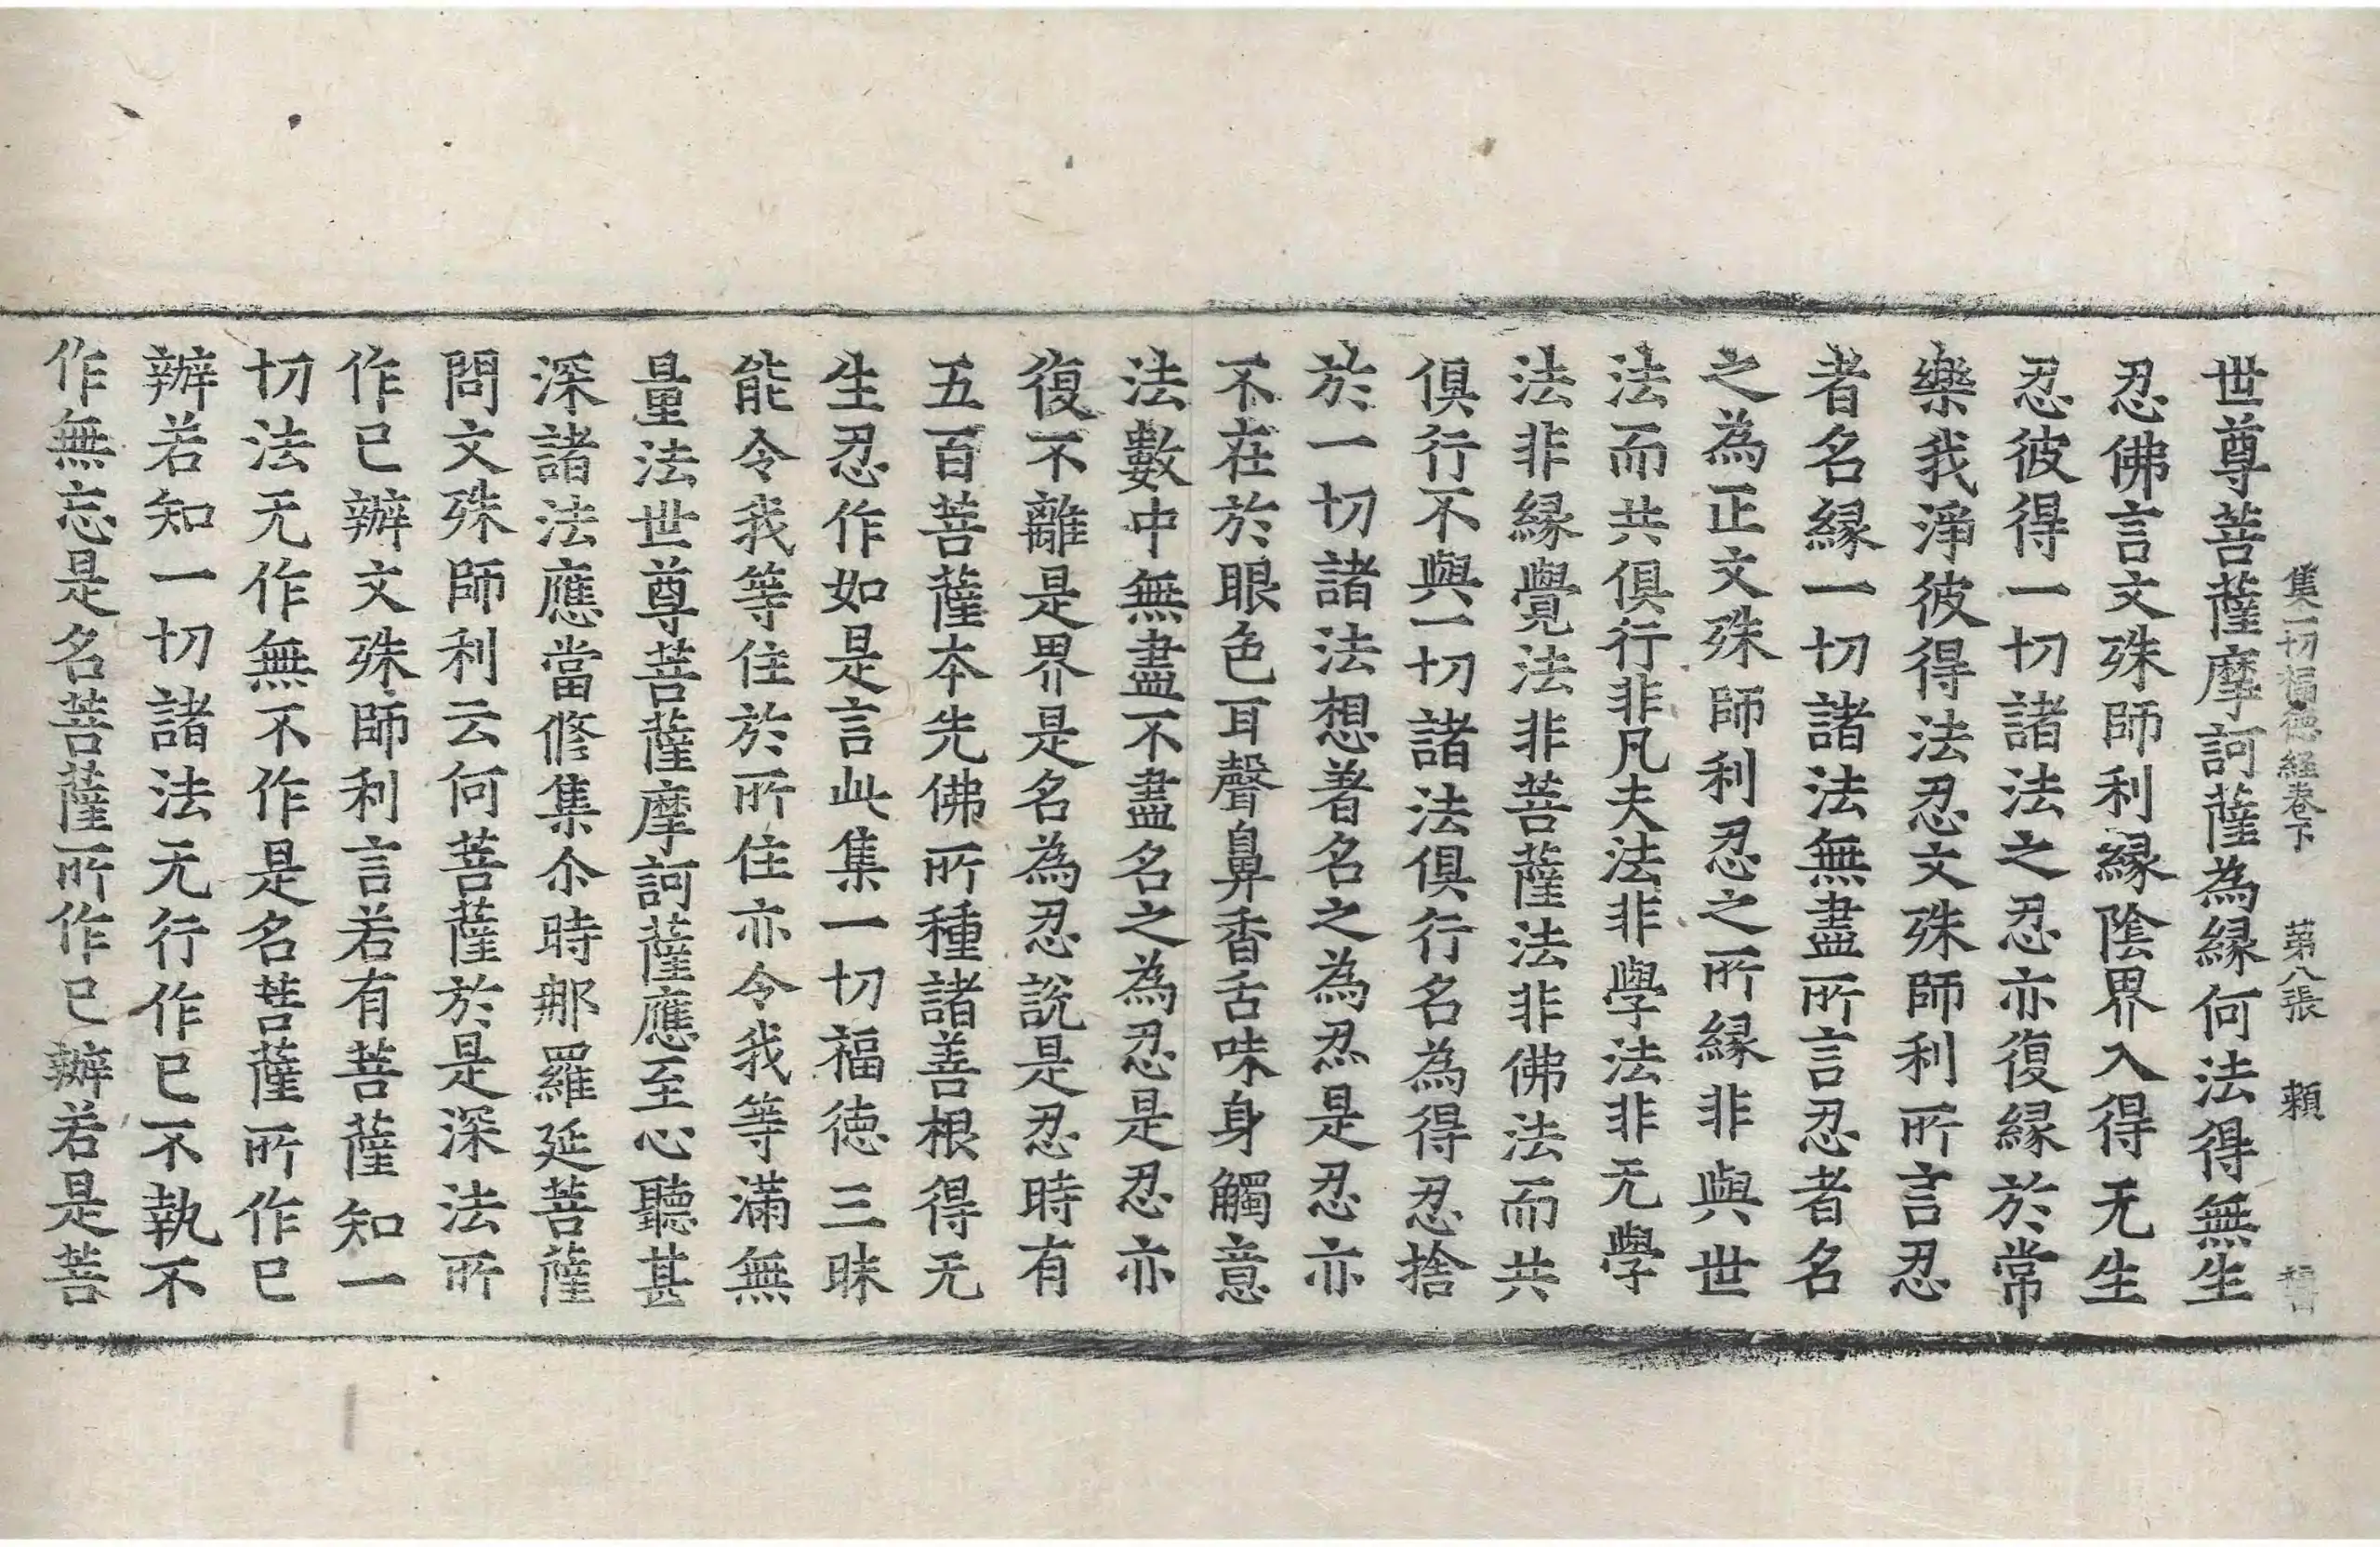 集一切福德経卷下 第八張 賴
世尊菩薩摩訶薩為縁何法得無生
忍佛言文殊師利縁陰界入得无生
忍彼得一切諸法之忍亦復縁於常
樂我淨彼得法忍文殊師利所言忍
者名縁一切諸法無盡所言忍者名
之為正文殊師利忍之所縁非與世
法而共俱行非凡夫法非學法非无學
法非縁覺法非菩薩法非佛法而共
俱行不與一切諸法俱行名為得忍捨
於一切諸法想著名之為忍是忍亦
不在於眼色耳聲鼻香舌味身觸意
法數中無盡不盡名之為忍是忍亦
復不離是界是名為忍說是忍時有
五百菩薩本先佛所種諸善根得无
生忍作如是言此集一切福德三昧
能令我等住於所住亦令我等滿無
量法世尊菩薩摩訶薩應至心聽甚
深諸法應當修集尒時那羅延菩薩
問文殊師利云何菩薩於是深法所
作已辦文殊師利言若有菩薩知一
切法无作無不作是名菩薩所作已
辦若知一切諸法无行作作已不執不
作無忘是名菩薩所作已辦若是菩